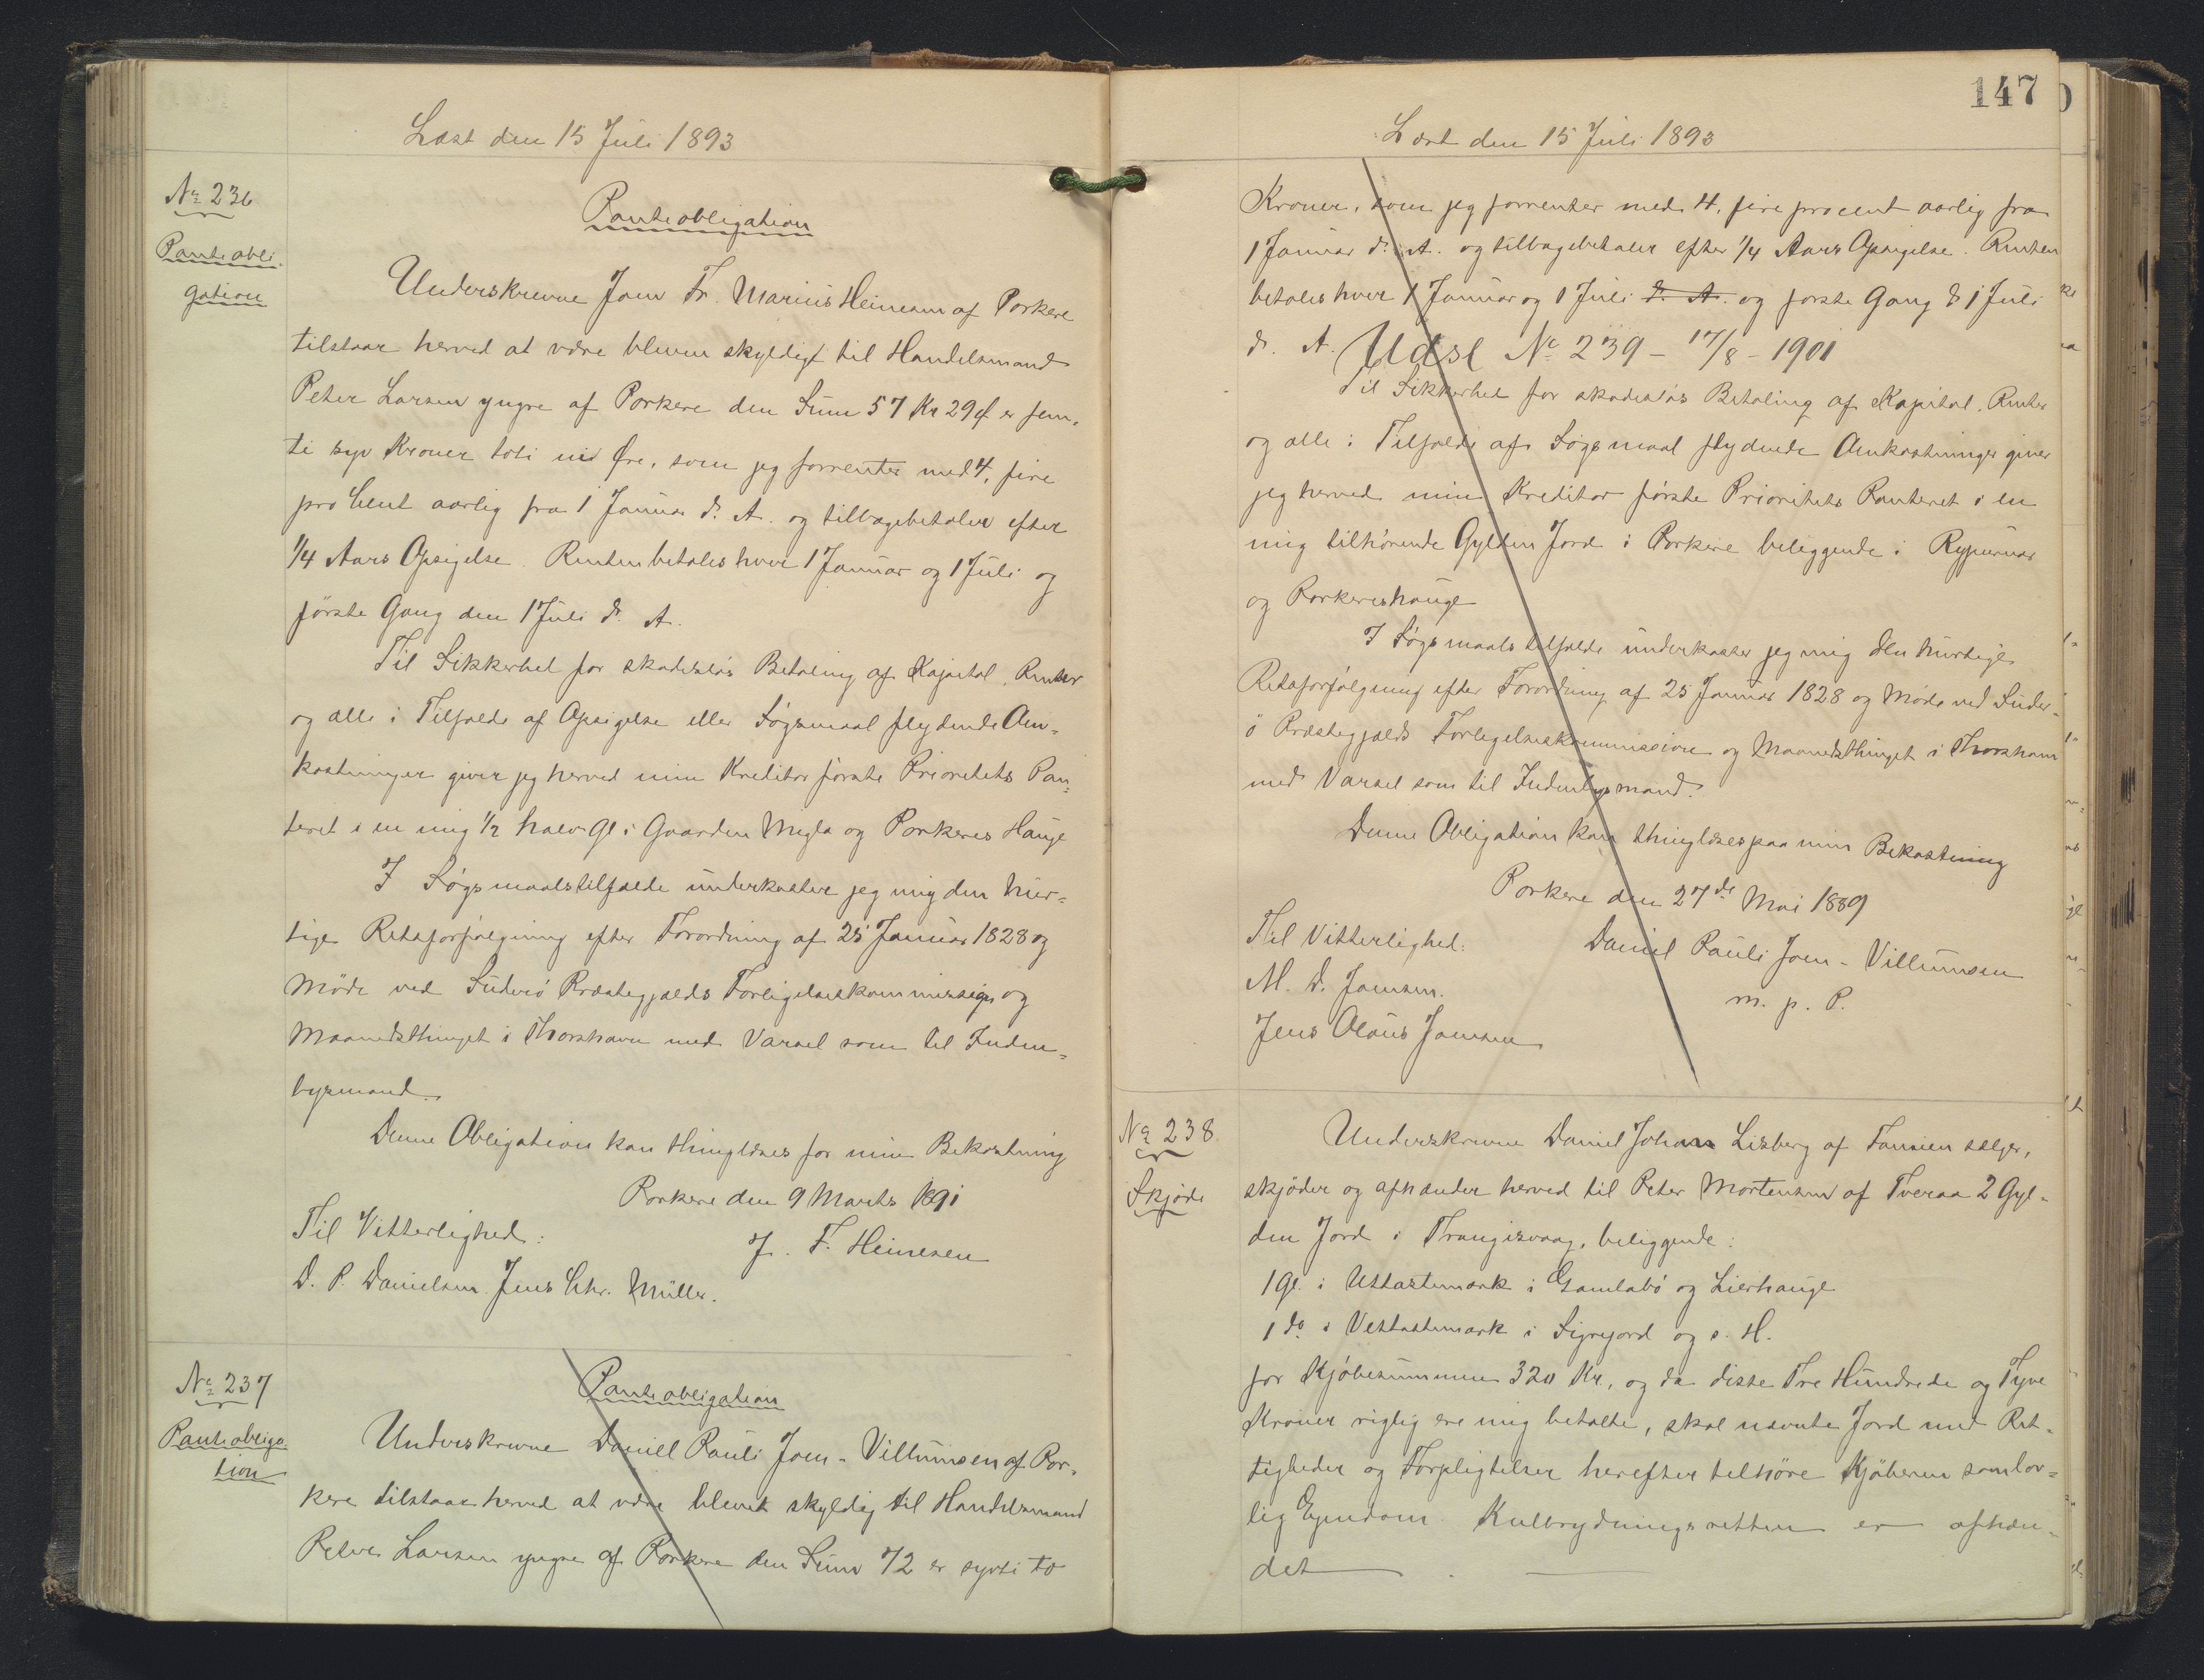 Læst den 15 Juli 1893
№ 236
Panteobli-
gation
Panteobligation
Underskrevne Joen Fr. Marius Heinesen af Porkere
tilstaar herved at være bleven skyldigt til Handelsmand
Peter Larsen yngre af Porkere den Sum 57 Kr 29 Ø er fem-
ti syv Kroner toti ni Øre, som jeg forrenter med 4, fire
pro Cent aarlig fra 1 Januar d. A. og tilbagebetaler efter
1/4 Aars Opsigelse. Renten betales hver 1 Januar og 1 Juli og
første Gang den 1 Juli d. A.
Til Sikkerhed for skadesløs Betaling af Kapital, Renter
og alle i Tilfælde af Opsigelse eller Søgsmaal flydende Om-
kostninger giver jeg herved min Kreditor første Prioritets Pan-
teret i en mig 1/2 halv Gl i Gaarden Migla og Porkeres Hauge
I Søgsmaalstilfælde underkaster jeg mig den hur-
tige Retsforfølgning efter Forordning af 25 Januar 1828 og
Møde ved Suderø Præstegjælds Forligelseskommission og
Maanedsthinget i Thorshavn med Varsel som til Inden-
bysmand.
Denne Obligation kan thinglæses for min Bekostning
Porkere den 9 Marts 1891
Til Vitterlighed:
J. F. Heinesen
D. P. Danielsen. Jens Chr. Müller.
№ 237
Panteobliga-
tion
Panteobligation
Underskrevne Daniel Pauli Joen-Villumsen af Por-
kere tilstaar herved at være blevet skyldig til Handelsmand
Peter Larsen yngre af Porkere den Sum 72 er syvti to
147
Læst den 15 Juli 1893
Kroner, som jeg forrenter med 4, fire procent aarlig fra
1 Januar d. A. og tilbagebetaler efter 1/4 Aars Opsigelse. Renten
betales hver 1 Januar og 1 Juli d. A. og første Gang d 1 Juli
d. A. Udsl № 239 - 17/8 - 1901
Til Sikkerhed for skadesløs Betaling af Kapital, Renter
og alle i Tilfælde af Søgsmaal flydende Omkostninger giver
jeg herved min Kreditor første Prioritets Panteret i en
mig tilhørende Gylden Jord i Porkere beliggende i Rypurnar
og Porkereshauge
I Søgsmaalstilfælde underkaster jeg mig den hurtige
Retsforfølgning efter Forordning af 25 Januar 1828 og Møde ved Suder-
ø Præstegjælds Forligelseskommission og Maanedsthinget i Thorshavn
med Varsel som til Indenbysmand.
Denne Obligation kan thinglæses paa min Bekostning
Porkere den 27de Mai 1889
Til Vitterlighed:
Daniel Pauli Joen-Villumsen
M. D. Joensen.
m. p. P.
Jens Olaus Joensen
№ 238
Skjøde
Underskrevne Daniel Johan Lisberg af Famien sælger,
skjøder og afhænder herved til Peter Mortensen af Tveraa 2 Gyl-
den Jord i Trangisvaag, beliggende:
1 Gl. i Uttastemark i Gamlabø og Lierhauge
1 do i Vestastemark i Signejord og s. H.
for Kjøbesummen 320 Kr, og da disse Tre Hundrede og Tyve
Kroner rigtig ere mig betalte, skal nævnte Jord med Ret-
tigheder og Forpligtelser herefter tilhøre Kjøberen som lov-
lig Ejendom. Kulbrydningsretten er afhæn-
det